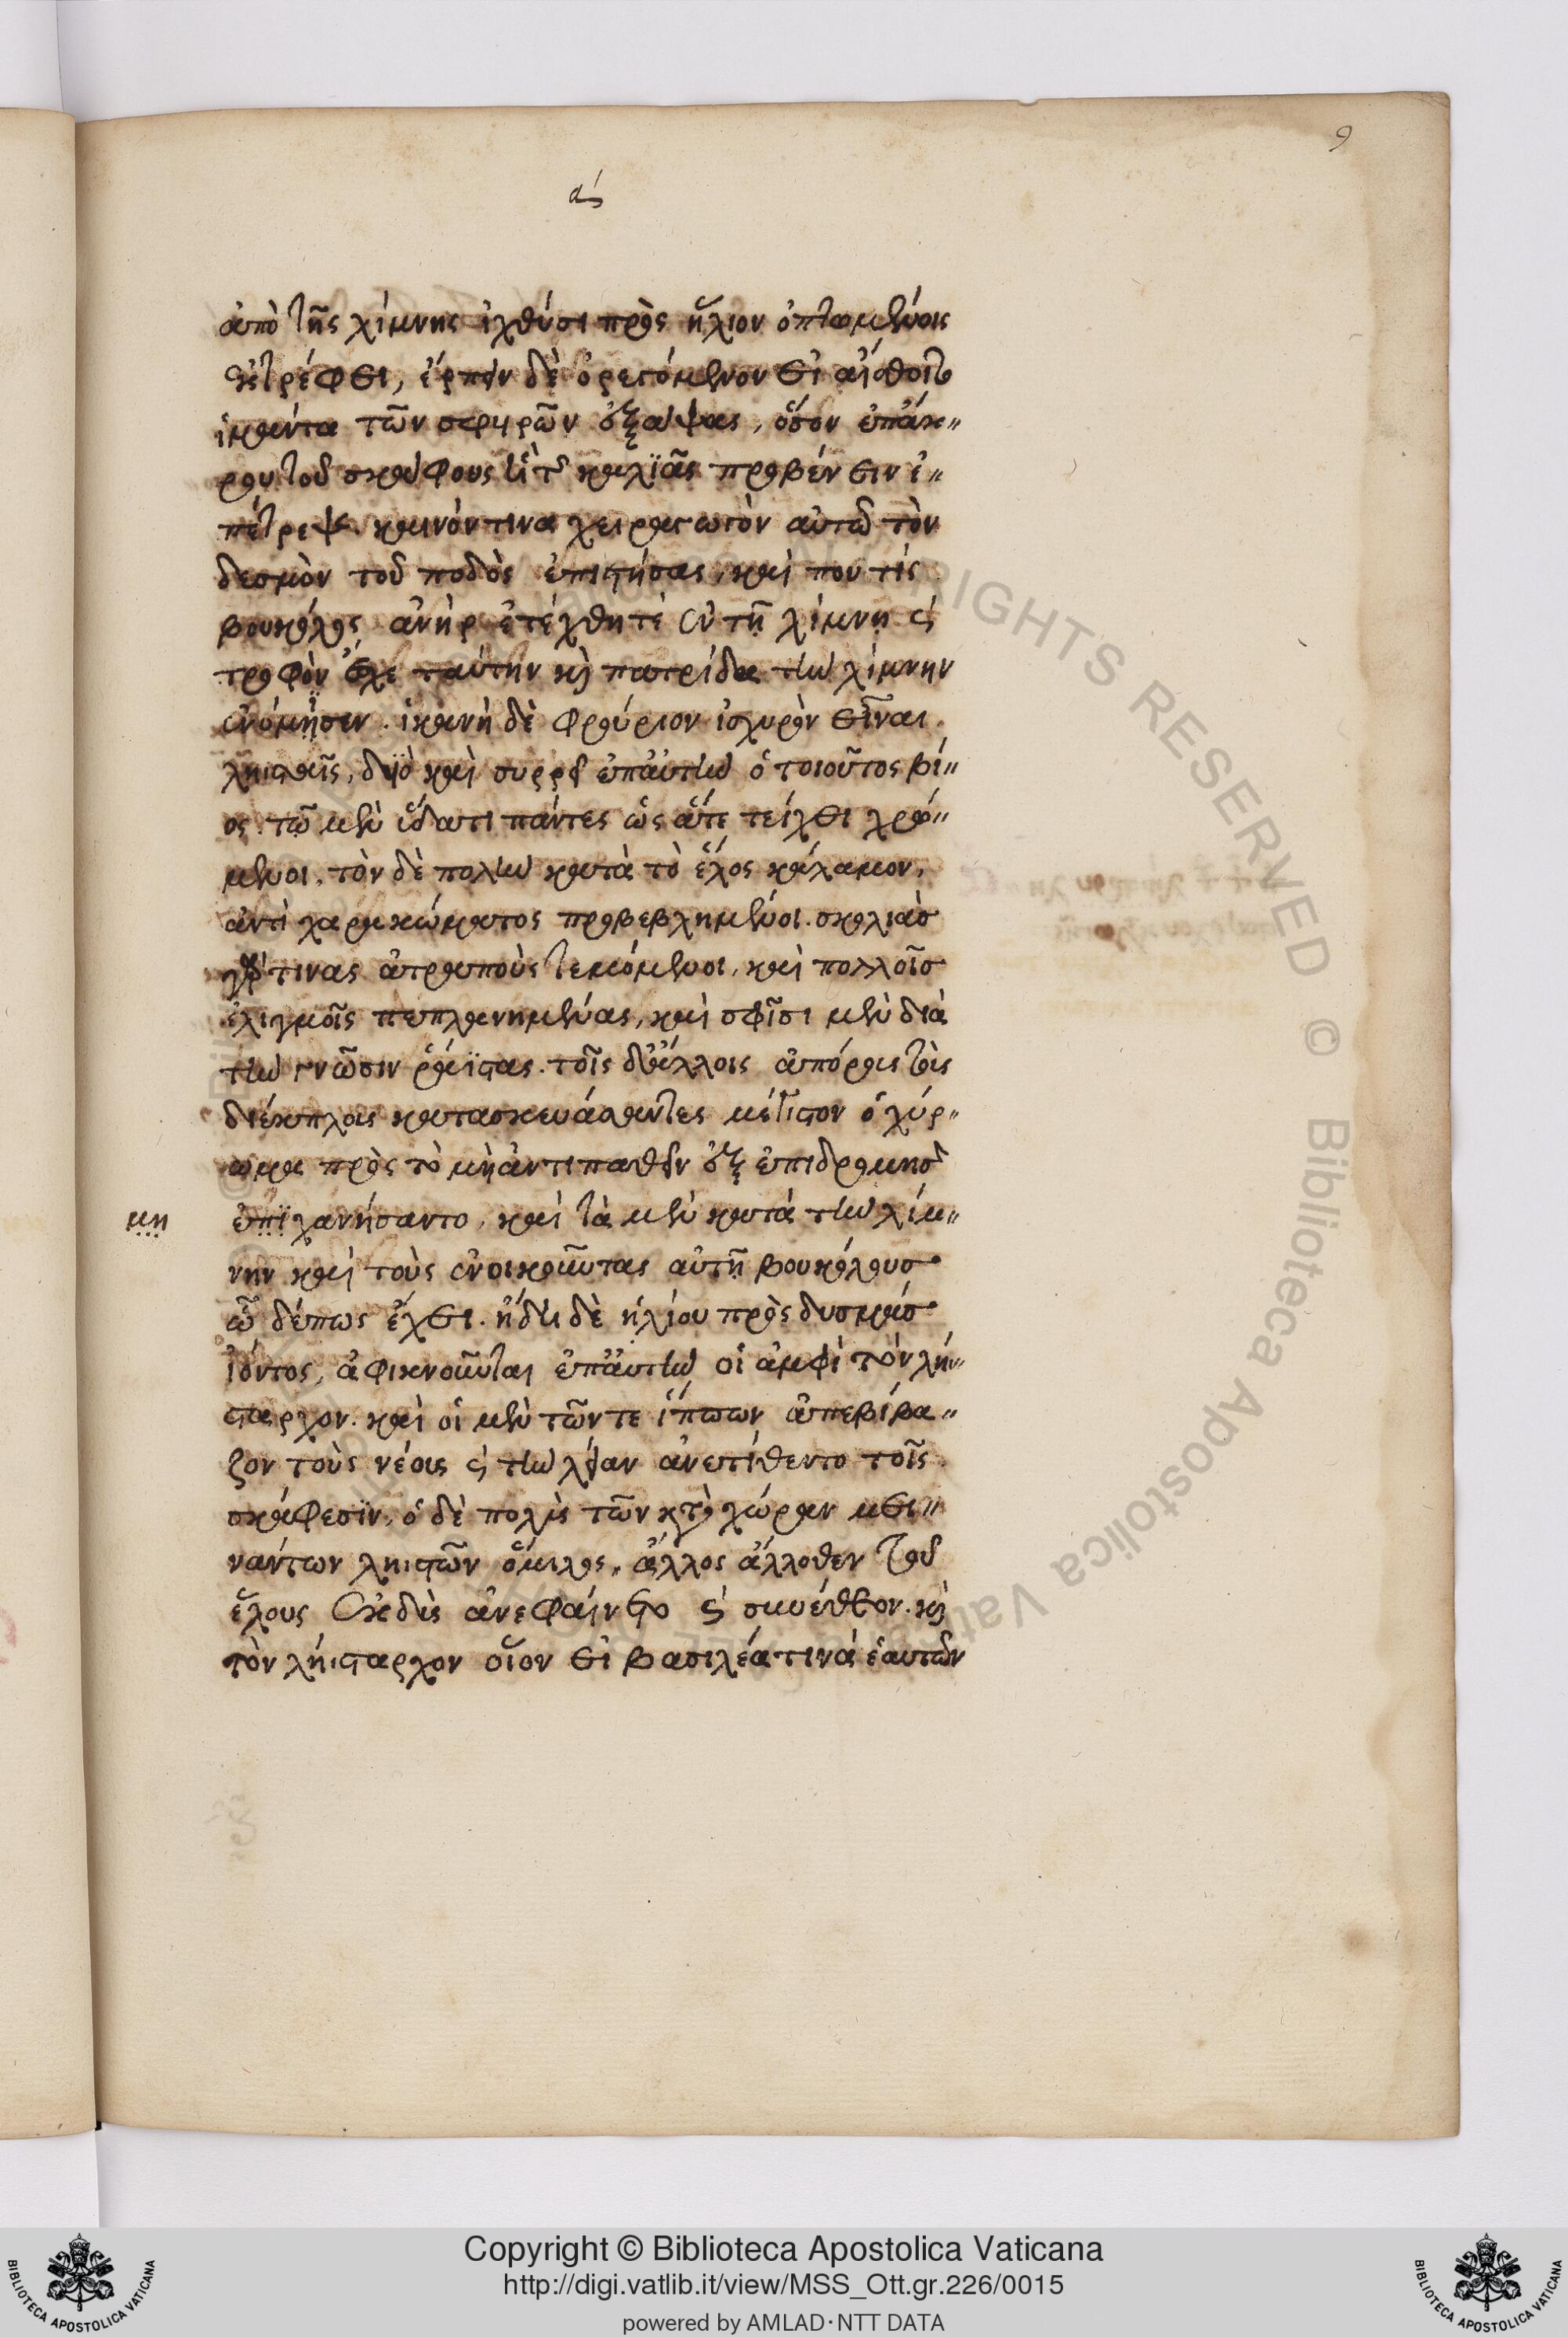 9
ας
ἀπὸ τῆς λίμνης ἰχθύσι πρὸς ἥλιον ὀπτωμένοις
ἐκτρέφει, ἕρπειν δὲ ὀρεγόμενον εἰ αἴσθοιτο
ἱμάντα τῶν σφυρῶν ἐξάψας, ὅσον ἐπ' ἄκ-
ρου τοῦ σκάφους ἢ τῆς καλϊᾶς προβαίνειν ἐ-
πέτρεψε. καινόν τινα χειραγωγὸν αὐτῶ τὸν
δεσμὸν τοῦ ποδὸς ἐπιστήσας, καί που τίς
βουκόλος ἀνὴρ ἐτέχθη τὲ ἐν τῆ λίμνη καὶ
τροφὸν ἔσχε ταύτην καὶ πατρίδα τὴν λίμνην
ἐνόμησεν. ἱκανὴ δὲ φρούριον ἰσχυρὸν εἶναι
λησταῖς, διὸ καὶ συρρεῖ ἐπ' αὐτὴν ὁ τοιοῦτος βί-
ος. τῶ μὲν ὕδατι πάντες ὡς ἅτε τείχει χρώ-
μενοι, τὸν δὲ πολὺν κατὰ τὸ ἕλος κάλαμον,
ἀντὶ χαρακώματος προβεβλημένοι. σκολιὰσ
γάρ τινας ἀτραποὺς τεμόμενοι, καὶ πολλοῖσ
ἑλιγμοῖς πεπλανημένας, καὶ σφίσι μὲν διὰ
τὴν γνῶσιν ῥάϊστας. τοῖς δὲ ἄλλοις ἀπόρους τοὺς
διέκπλους κατασκευάσαντες μέγιστον ὀχύρ-
ωμα πρὸς τὸ μὴ ἀντιπαθεῖν ἐξ ἐπιδρομῆσ
μη
ἐπϊχανήσαντο, καὶ τὰ μὲν κατὰ τὴν λίμ-
νην καὶ τοὺς ἐνοικοῦντας αὐτῆ βουκόλουσ
ὧδέ πως ἔχει. ἤδη δὲ ἡλίου πρὸς δυσμάσ
ἰόντος, ἀφικνοῦνται ἐπ' αὐτὴν οἱ ἀμφὶ τὸν λή-
σταρχον. καὶ οἱ μὲν τῶν τε ἵππων ἀπεβίβα-
ζον τοὺς νέους καὶ τὴν λείαν ἀνετίθεντο τοῖς
σκάφεσϊν, ὁ δὲ πολὺς τῶν κατὰ χώραν μει-
νάντων ληστῶν ὅμιλος, ἄλλος ἄλλοθεν τοῦ
ἕλους ἐκδὺς ἀνεφαίνετο καὶ συνέθεον. καὶ
τὸν λήϊσταρχον οἷον εἰ βασιλέα τινὰ ἑαυτῶν
Copyright © Biblioteca Apostolica Vaticana
http://digi.vatlib.it/view/MSS_Ott.gr.226/0015
powered by AMLAD·NTT DATA